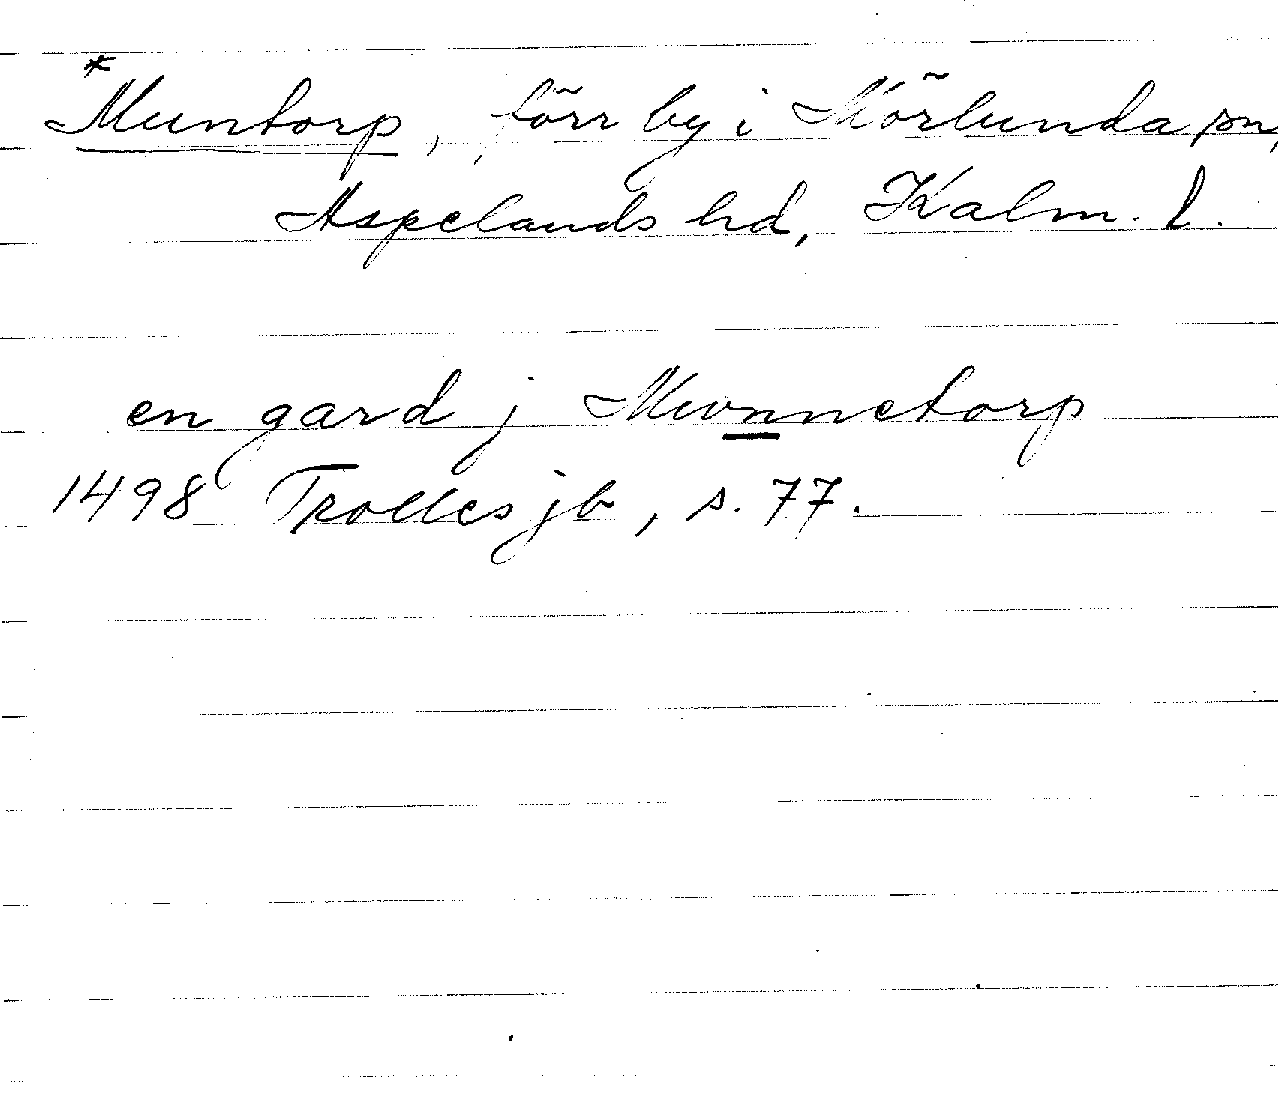 *Muntorp, förr by i Mörlunda sn,
Aspelands hd, Kalm. l.
en gard j Mwnnetorp
1498 Trolles jb, s. 77.